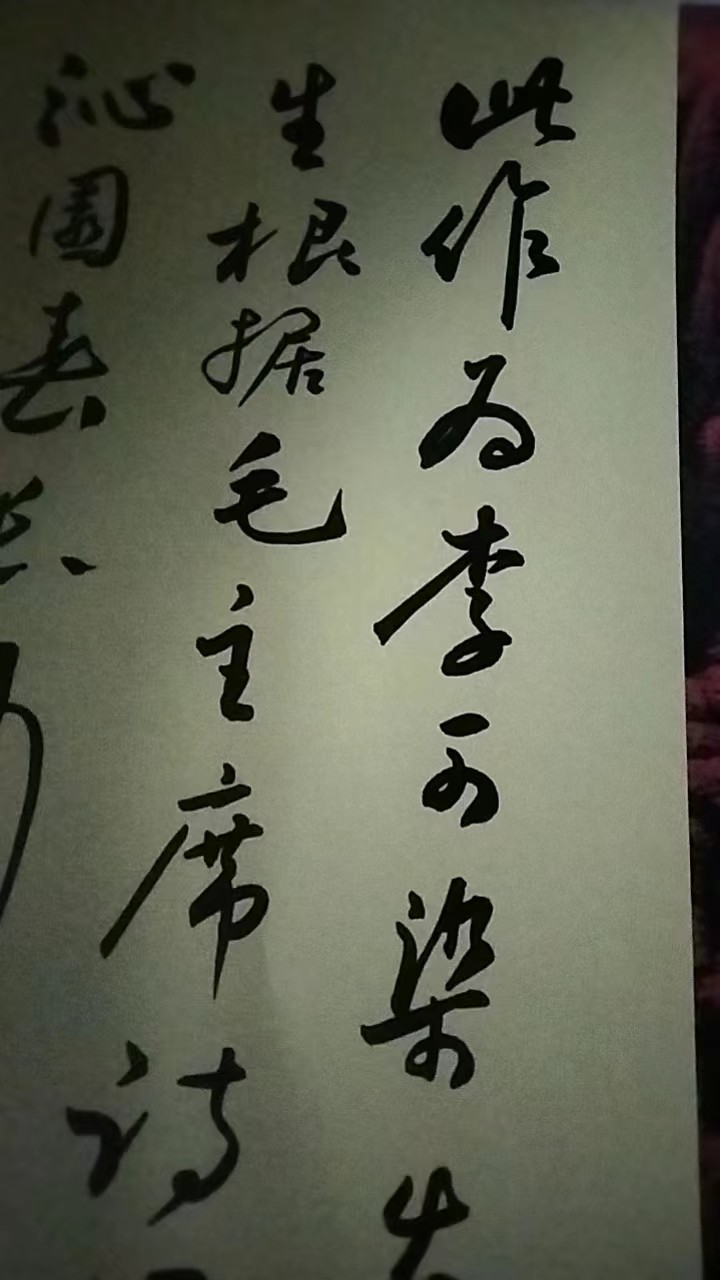 此作为李可染先
生根据毛主席诗
沁园春长沙